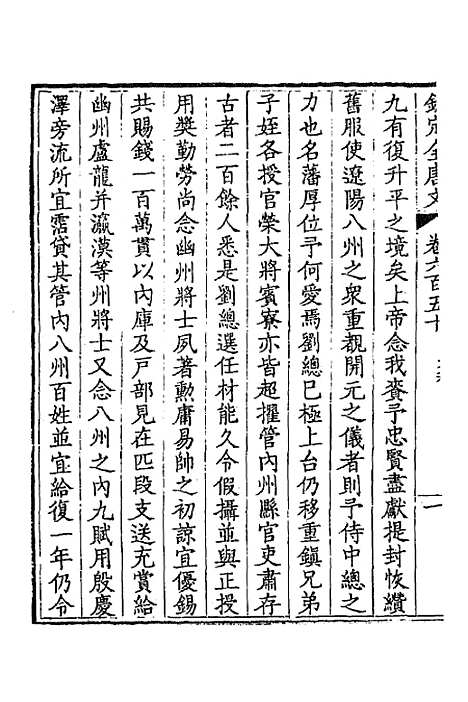 欽定全唐文 卷六百五十
九有復升平之境矣上帝念我賚予忠賢盡獻提封恢纘
舊服使遼陽八州之衆重覩開元之儀者則予侍中總之
力也名藩厚位予何愛焉劉總已極上台仍移重鎮兄弟
子姪各授官榮大將賓寮亦皆超擢管內州縣官吏肅存
古者二百餘人悉是劉總選任材能久令假攝並與正授
用奬勤勞尚念幽州將士夙著勲庸易帥之初諒宜優錫
共賜錢一百萬貫以內庫及戸部見在匹段支送充賞給
幽州盧龍并瀛漠等州將士又念八州之內九賦用殷慶
澤旁流所宜霑貸其管內八州百姓並宜給復一年仍令